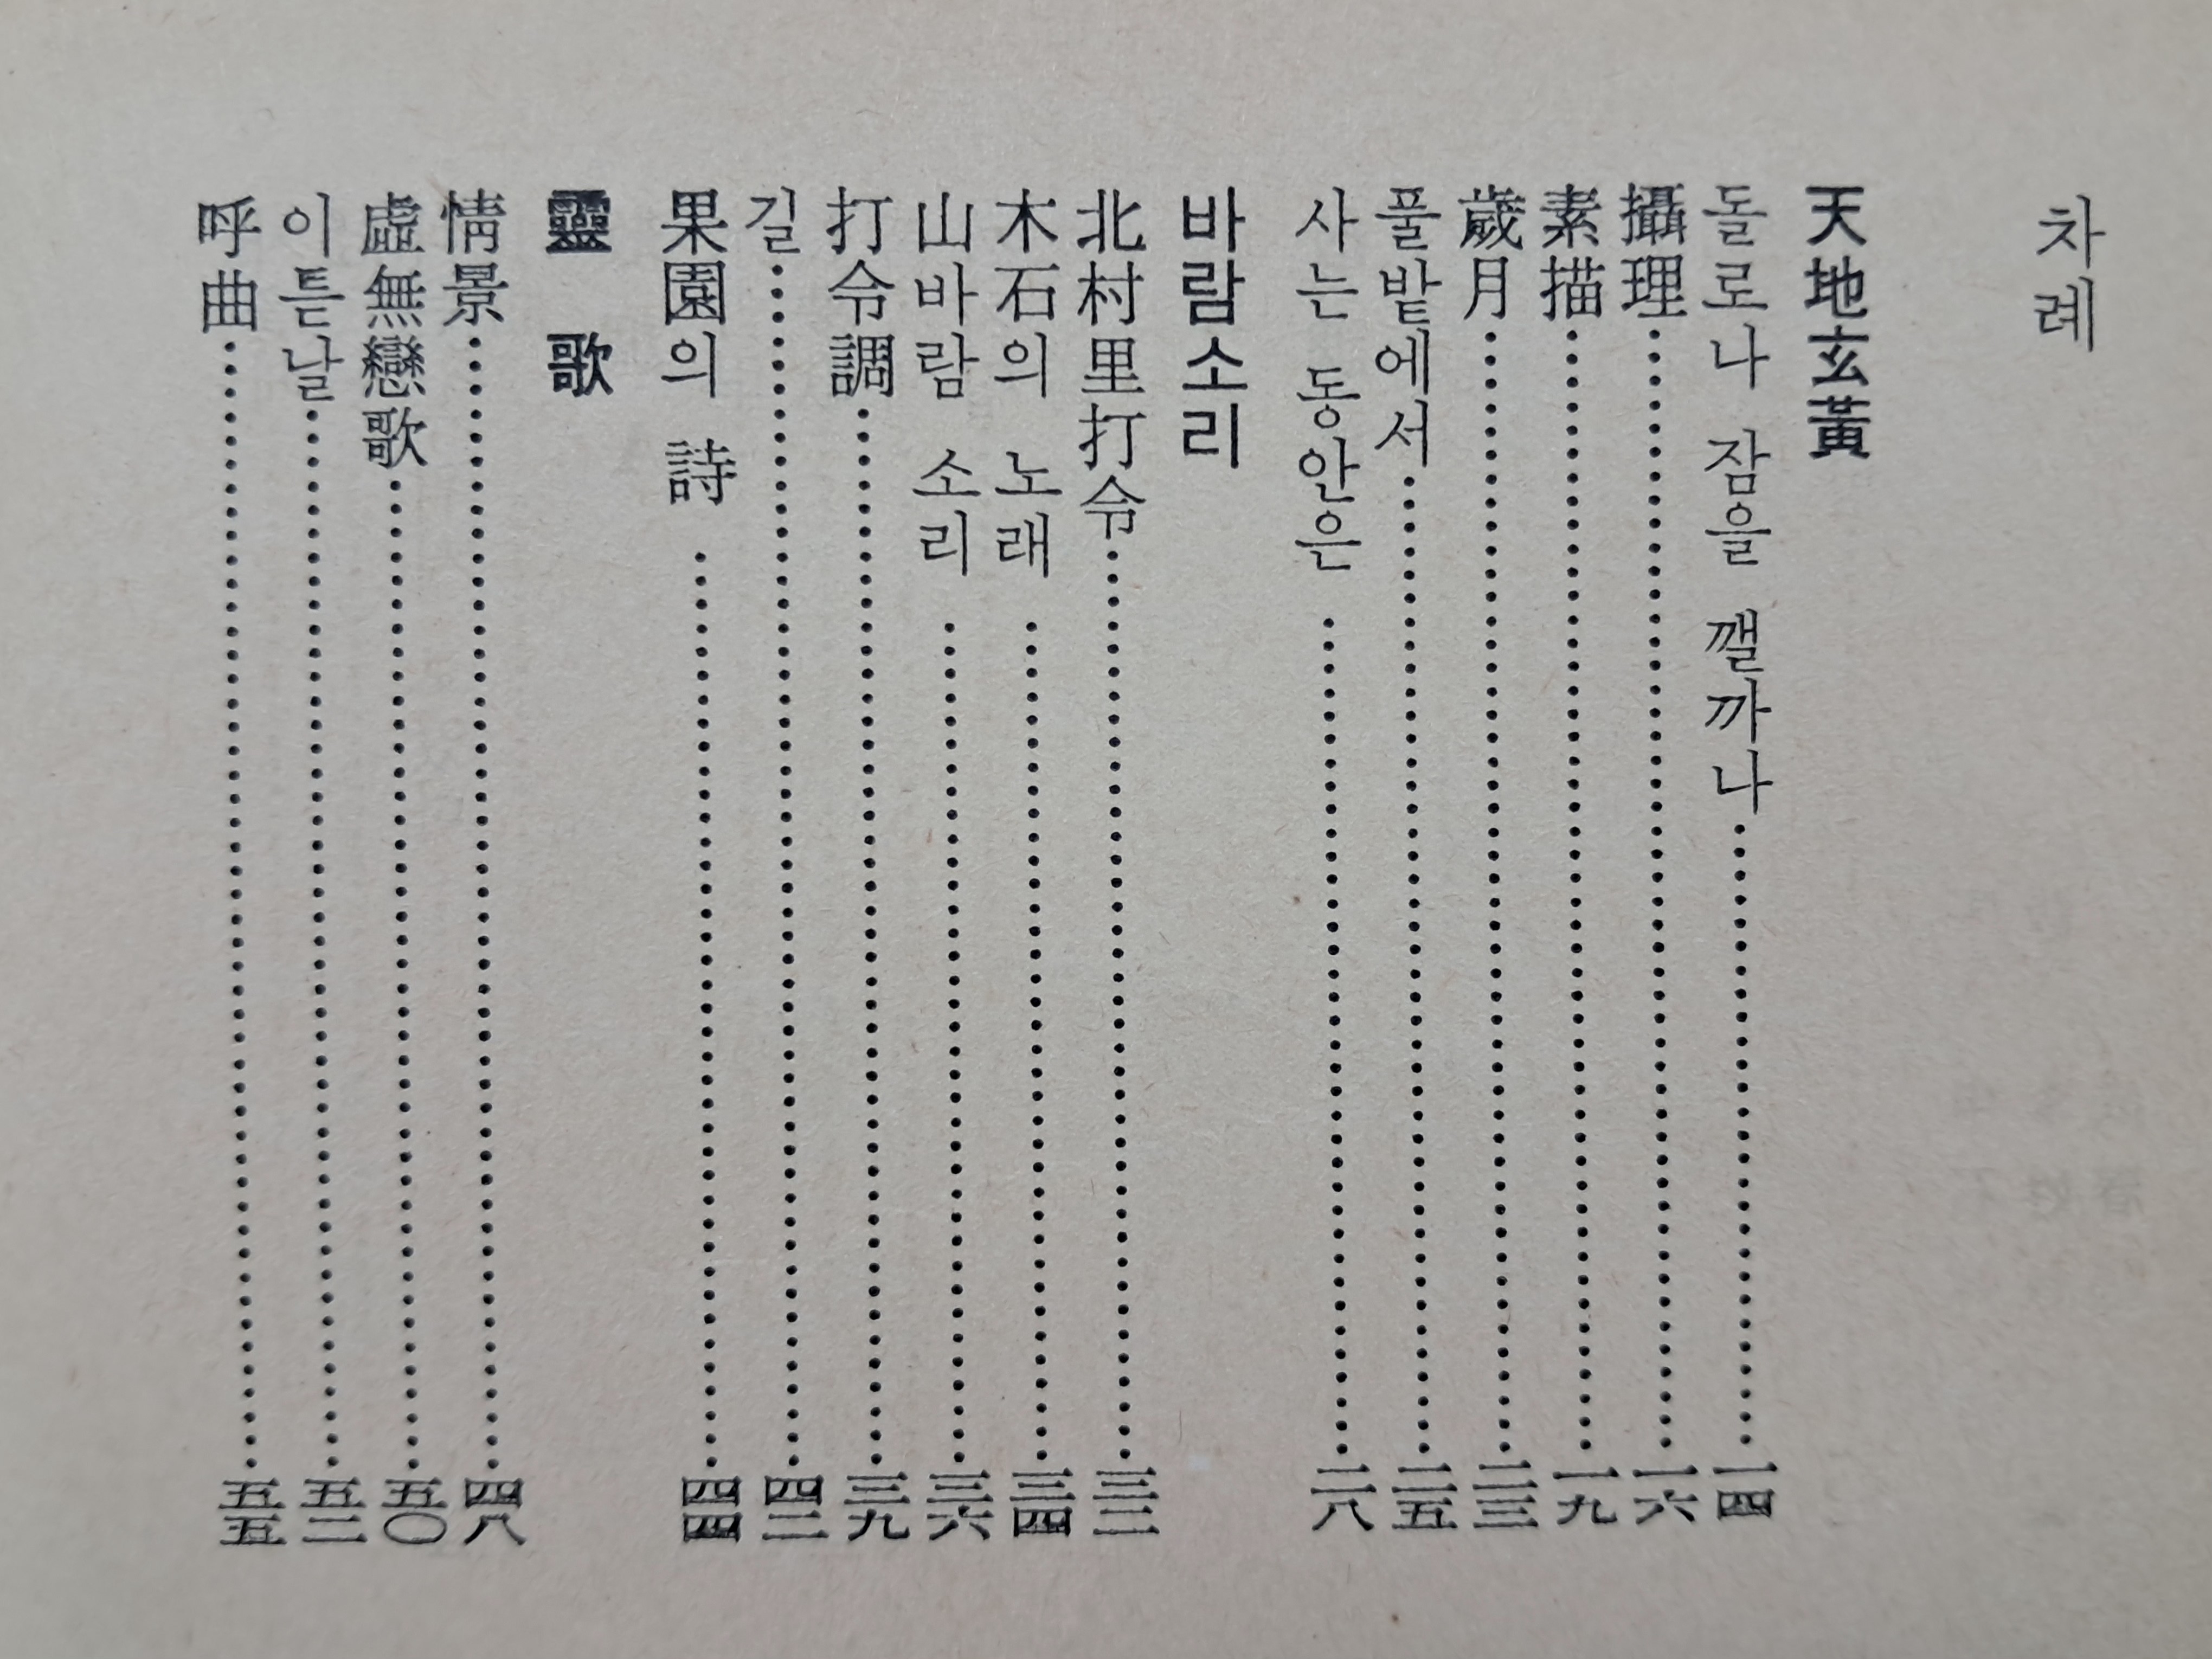 차례
天地玄黃
돌로나 잠을 깰까나……一四
攝理……一六
素描……一九
歲月……二三
풀밭에서……二五
사는 동안은……二八
바람소리
北村里打令……三二
木石의 노래……三四
山바람 소리……三六
打令調……三九
길……四二
果園의 詩……四四
靈歌
情景……四八
虛無戀歌……五〇
이튿날……五二
呼曲……五五